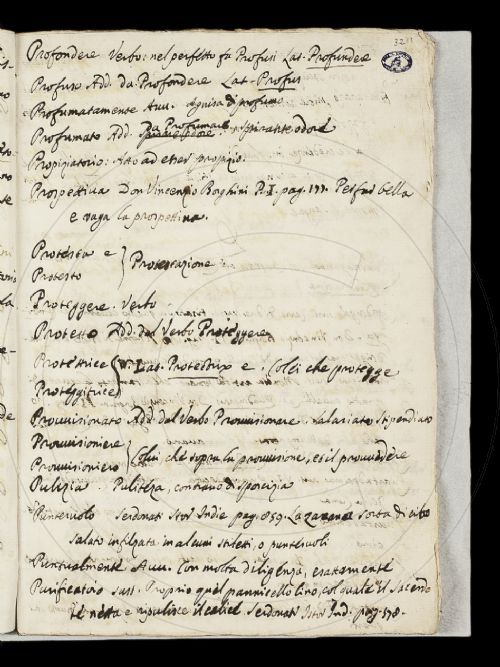 Profondere Verbo: nel perfetto fa Profusi Lat. Profundere
Profuso Add. da Profondere Lat. Profus
Profumatamente Avv. a guisa di profumo
Profumato Add. Da Profumare. spirante odore
Propiziatorio: Atto ad esser propizio:
Prospettiva Don Vincenzio Borghini P. I. pag. 177. Per sua bella
e vaga la prospettiva.
Protesta e
Protesto } Protestazione
Proteggere. Verbo
Protetto Add. dal Verbo Proteggere
Protettrice
Proteggitrice } Lat. Protectrix e. Colei che protegge
Provvisionato Add. dal Verbo Provvisionare. Salariato Stipendiato
Provvisioniere
Provvisioniero } Colui che sopra la provvisione, ed il provvedere
Pulizia. Pulitezza, contrario di sporcizia
Punteruolo Serdonati Stor. Indie pag. 859. La sorta di cibo
salato infilzata in alcuni stiletti, o punteruoli
Puntualmente Avv. Con molta diligenza, esattamente
Purificatoio sust. Proprio quel pannicello lino, col quale il Sacerdo
te netta e ripulisce il calice. Serdonati Istor. Ind. pag. 578.